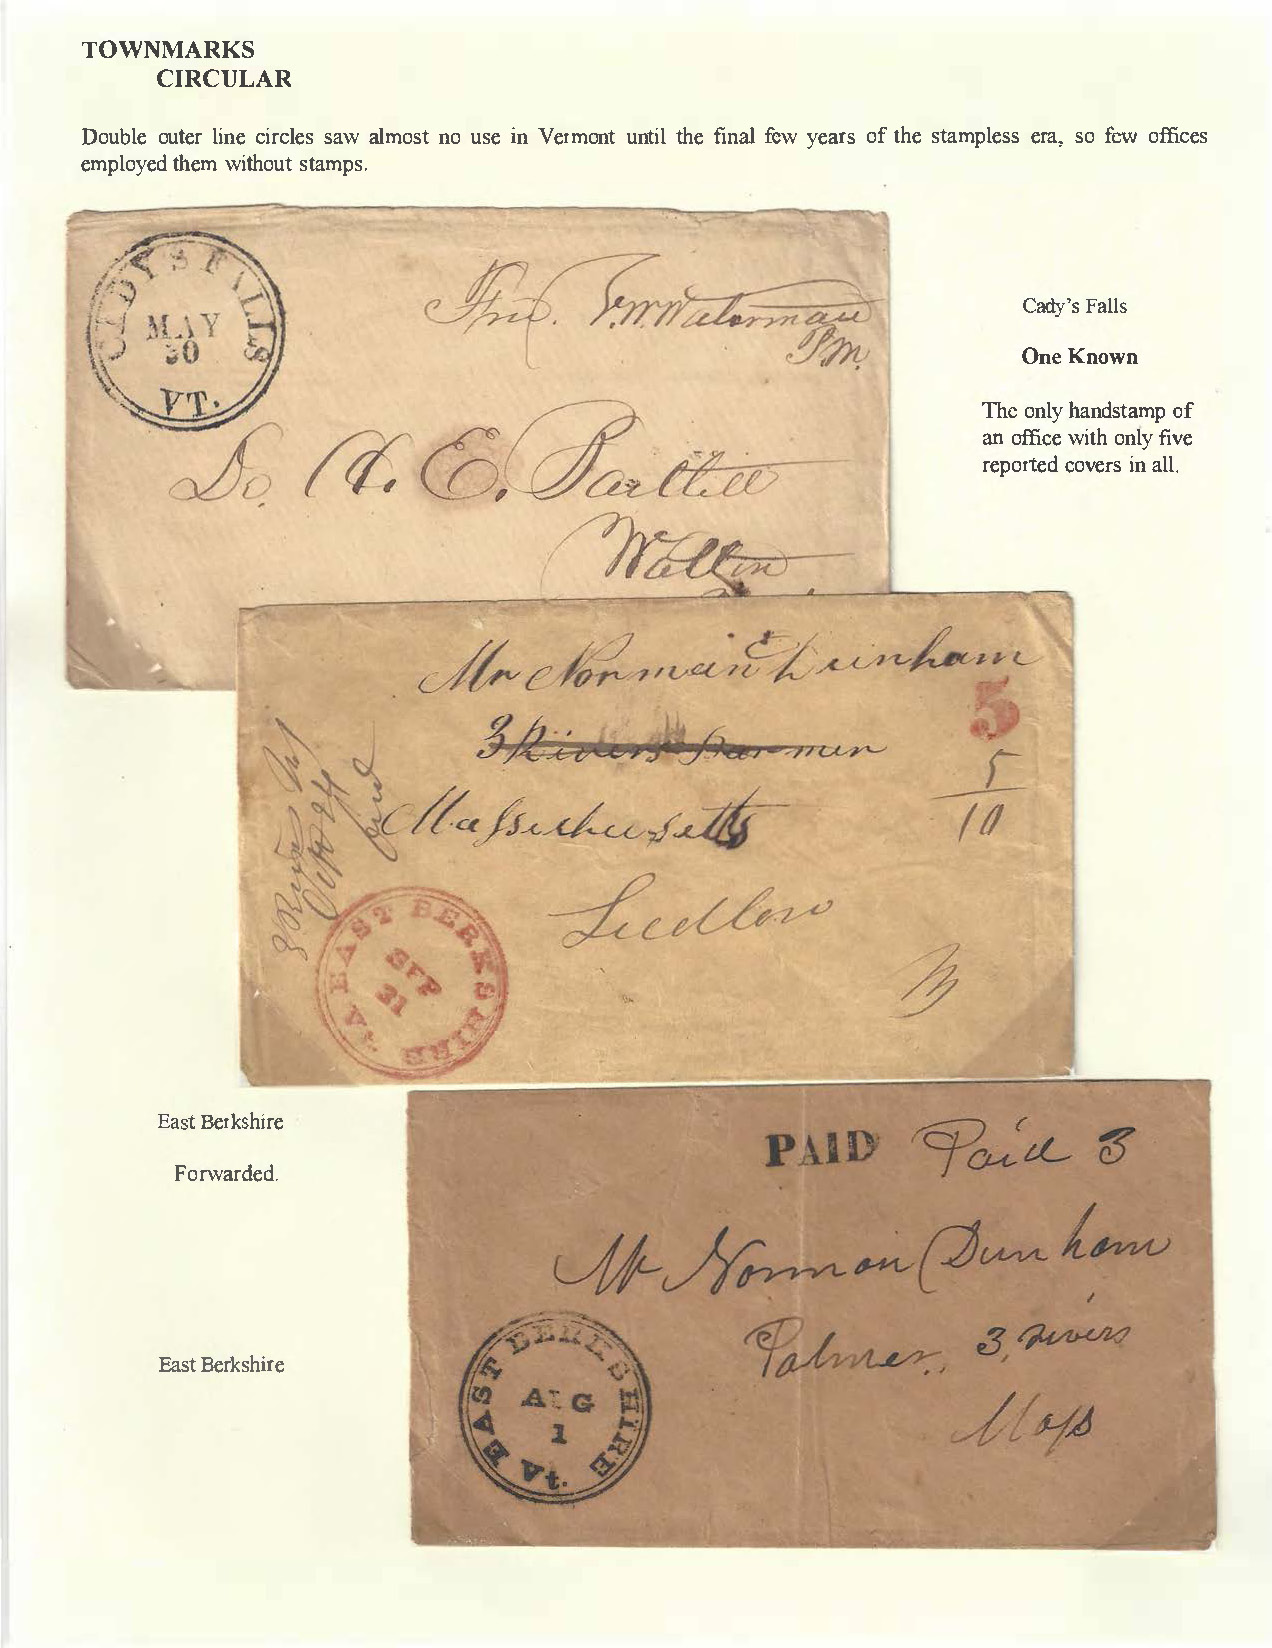 TOWNMARKS
CIRCULAR
Double outer line circles saw almost no use in Vermont until the final few years of the stampless era, so few offices
employed them without stamps.
CADYS FALLS
MAY
30
VT.
Waterman
P.M.
E. Bartlett
Cady's Falls
One Known
The only handstamp of
an office with only five
reported covers in all.
Mr Norman Dunham
5
3 Rivers
5
Massachusetts
10
Ludlow
3 Rivers
EAST BERKSHIRE
SEP
21
East Berkshire
Forwarded.
PAID Paid 3
Mr Norman Dunham
Palmer, 3, rivers
Mass
EAST BERKSHIRE
AUG
1
Vt.
East Berkshire